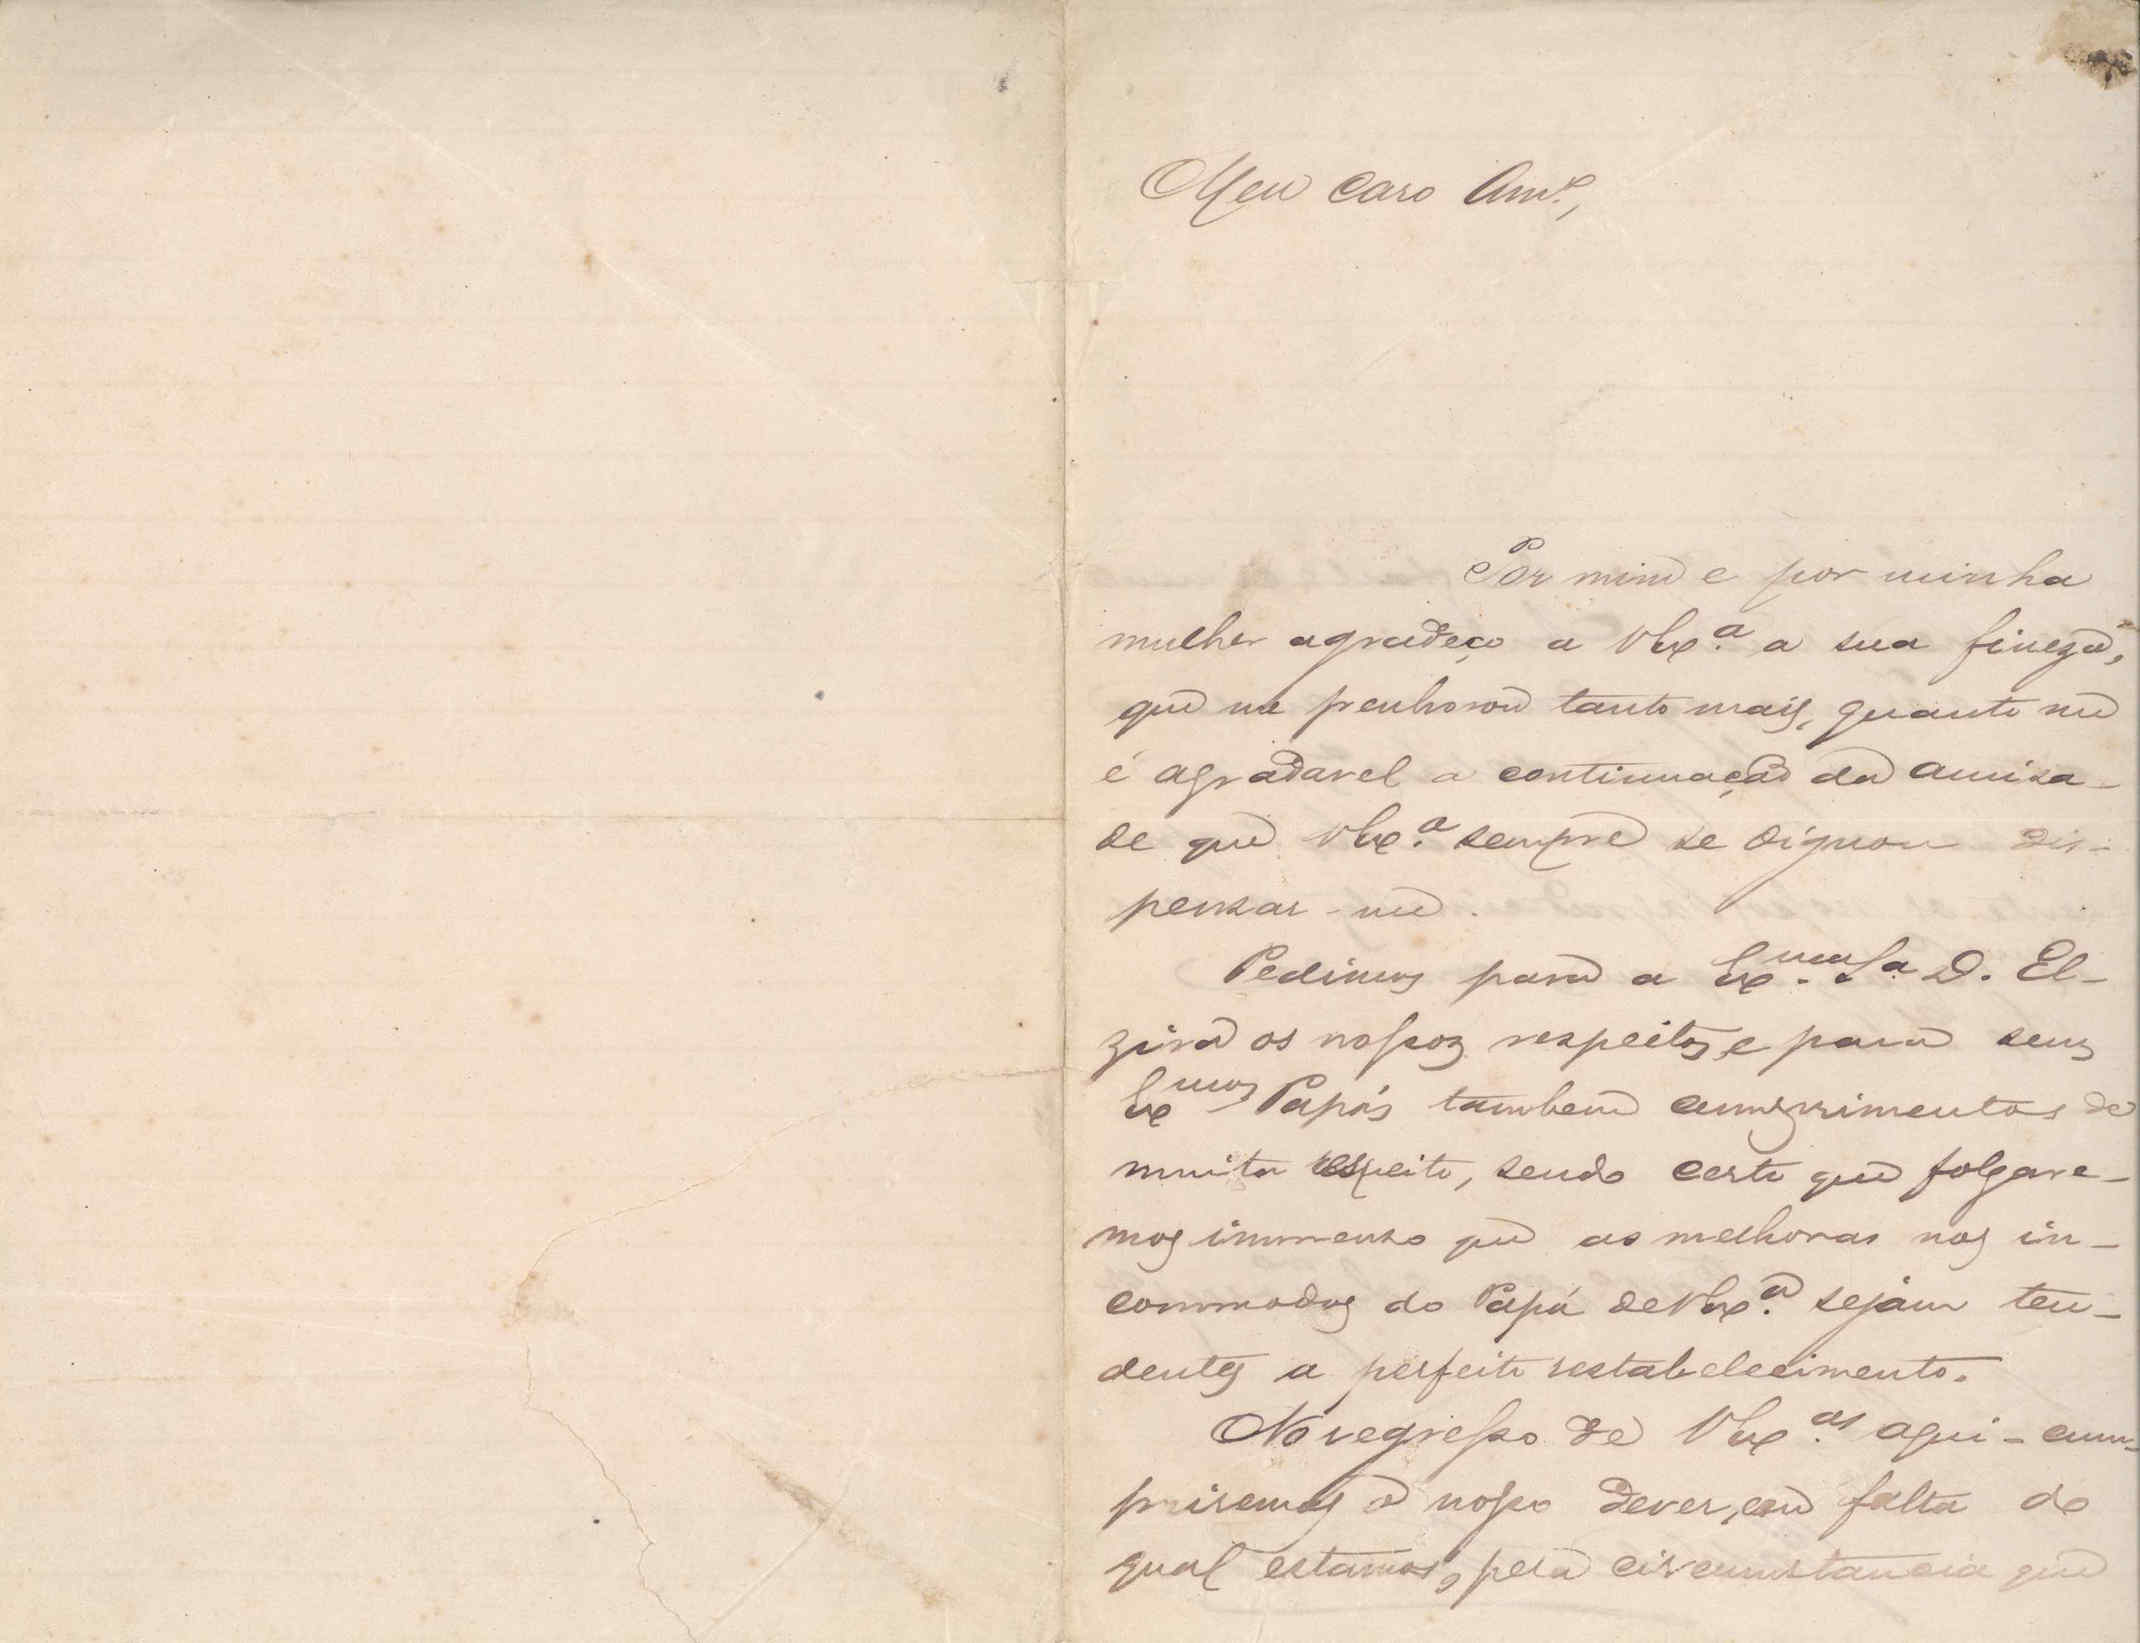 Meu caro Amº,
Por mim e por minha
mulher agradeço a VExª a sua fineza,
que me penhorou tanto mais, quanto me
é agradavel a continuação da amisa-
de que VExª sempre se dignou dis-
pensar-me.
Pedimos para a Exma Sra D. El-
zira os nossos respeitos, e para seus
Exmos Papás tambem cumprimentos de
muito respeito, sendo certo que folgare-
mos immenso que as melhoras nos in-
commodos do Papá de VExª sejam ten-
dentes a perfeito restabelecimento.
No regresso de VExas aqui - cum-
priremos o nosso dever, em falta do
qual estamos, pela circumstancia que